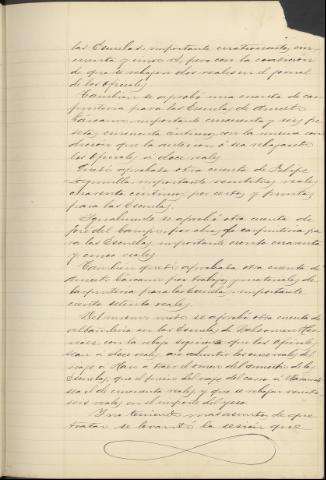 las Escuelas importante cuatrocientos cin-
cuenta y cinco rs, pero con la condicion
de que se rebajen dos reales en el jornal
de los oficiales
Tambien se aprobó una cuenta de car-
pinteria para las Escuelas de
importante cincuenta y seis pe-
setas cincuenta centimos, con la misma con-
dicion que la anterior ó sea rebajando
los oficiales á doce reales
Quedó aprobada otra cuenta de Felipe
importante veintitres reales
cuarenta centimos, por cortes y puntas
para las Escuelas
Igualmente se aprobó otra cuenta de
José del Campo, por obras de carpinteria pa-
ra las Escuelas importante ciento cuarenta
y cinco reales
Tambien quedó aprobada otra cuenta de
por trabajos y materiales de
carpinteria para las Escuelas importante
ciento setenta reales
Del mismo modo se aprobó otra cuenta de
albañileria en las Escuelas de
con la rebaja siguiente que los oficiales
sean a doce reales,
de las
Escuelas, que el precio del viaje del carro á
sea el de cincuenta reales y que se rebajen veinte
seis reales en el importe del yeso
Y no teniendo mas asuntos de que
tratar se levantó la sesion que